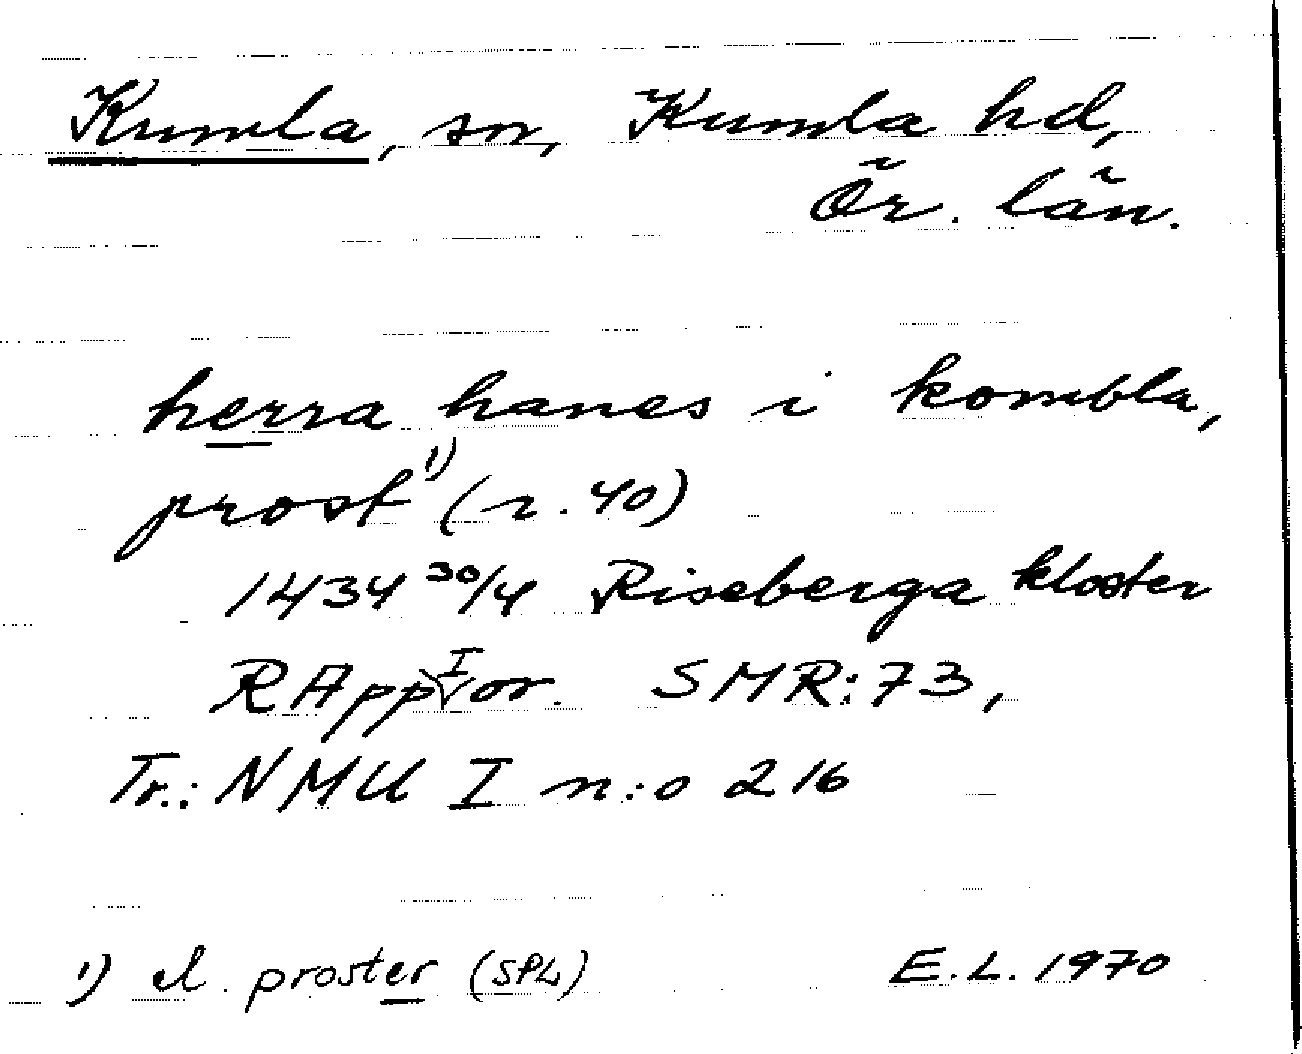 Kumla, sn, Kumla hd,
Ör. län.
herra hanes i kombla,
prost 1) (r. 40)
1434 30/4 Riseberga kloster
RApp I or. SMR: 73,
Tr.: NMU I n:o 216
1) el. proster (SPL)
E.L. 1970